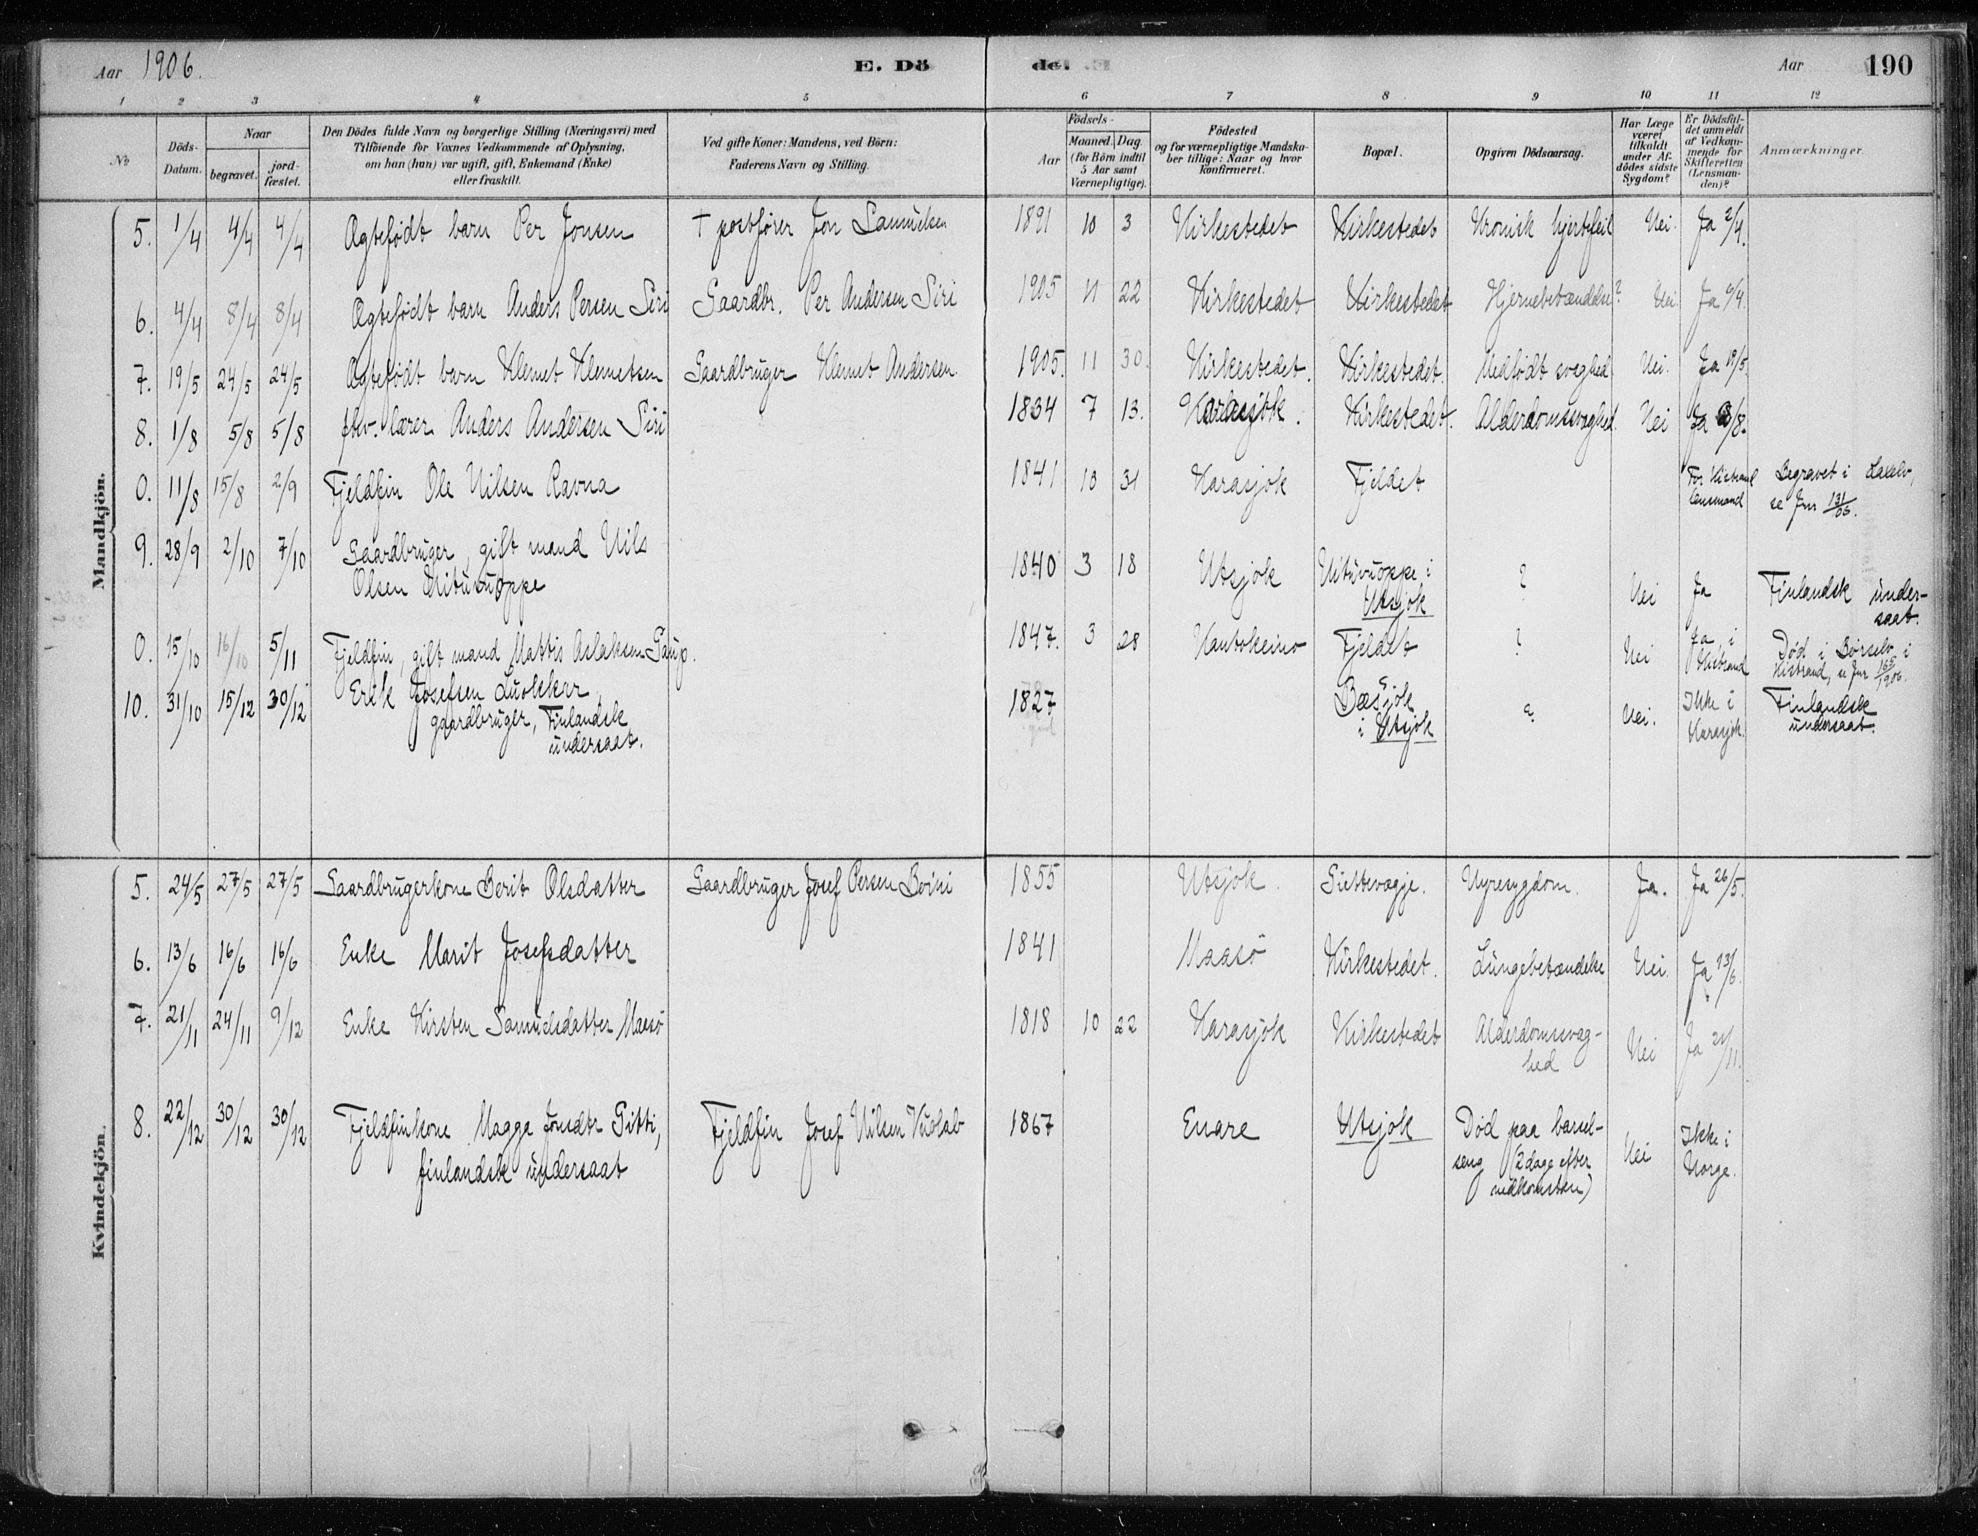 Aar 1906. E. Dö de. Aar 190
1 2 3 4 5 6 7 8 9 10 11 12
No
Döds-Datum.
Naar
begravet. jord-fæstet.
Den Dödes fulde Navn og borgerlige Stilling (Næringsvei) med
Tilföiende for Voxnes Vedkommende af Oplysning,
om han (hun) var ugift, gift, Enkemand (Enke)
eller fraskilt.
Ved gifte Koner: Mandens, ved Börn:
Faderens Navn og Stilling.
Födsels-
Aar Maaned. Dag.
(for Börn indtil
5 Aar samt
Værnepligtige).
Födested
og for værnepligtige Mandska-
ber tillige: Naar og hvor
konfirmeret.
Bopæl.
Opgiven Dödsaarsag.
Har Læge
været
tilkaldt
under Af-
dödes sidste
Sygdom?
Er Dödsfal-
det anmeldt
af Vedkom-
mende for
Skifteretten
(Lensman-
den)?
Anmærkninger.
Mandkjön.
5. 1/4 4/4 4/4 Ægtefødt barn Per Jonsen † postfører Jon Samuelsen 1891 10 3 Kirkestedet Kirkestedet Kronisk hjertefeil Nei. Ja 2/4.
6. 4/4 8/4 8/4 Ægtefødt barn Anders Persen Siri Gaardbr. Per Andersen Siri 1905 11 22 Kirkestedet Kirkestedet Hjernebetændelse? Nei Ja 6/4.
7. 19/5 24/5 24/5 Ægtefødt barn Klemet Klemetsen Gaardbruger Klemet Andersen. 1905. 11 30. Kirkestedet. Kirkestedet. Medfødt svaghed Nei. Ja 19/5.
8. 1/8 5/8 5/8 fhv. lærer Anders Andersen Siri 1834 7 13. Karasjok. Kirkestedet. Alderdomssvaghed. Nei Ja /8.
0. 11/8 15/8 2/9 Fjeldfin Ole Nilsen Ravna 1841 10 31 Karasjok Fjeldet For Kistrand Begravet i Lakselv,
lensmand se Jnr 131/06.
9. 28/9 2/10 7/10 Gaardbruger, gift mand Nils
Olsen Nituvuoppe 1840 3 18 Utsjok Nituvuoppe i
Utsjok ? Nei Ja Finlandsk under-
saat.
0. 15/10 16/10 5/11 Fjeldfin, gift mand Mattis Aslaksen Gaup. 1847. 3 28 Kautokeino Fjeldet ? Nei Ja i
Kistrand Død i Børselv i
Kistrand, se Jnr 165/1906.
10. 31/10 15/12 30/12 Erik Josefsen Luokkar,
gaardbruger, Finlandsk
undersaat. 1827 Bæsjok
i Utsjok ? Nei. Ikke i
Karasjok. Finlandsk
undersaat.
Kvindekjön.
5. 24/5 27/5 27/5 Gaardbrugerkone Berit Olsdatter Gaardbruger Josef Persen Boini 1855 Utsjok. Siettevagje. Nyresygdom. Ja. Ja 26/5.
6. 13/6 16/6 16/6 Enke Marit Josefsdatter 1841 Maasö Kirkestedet. Lungebetændelse Nei. Ja 13/6.
7. 21/11 24/11 9/12 Enke Kirsten Samuelsdatter Maesö 1818 10 22 Karasjok Kirkestedet Alderdomssvag-
hed Nei Ja 21/11.
8. 22/12 30/12 30/12 Fjeldfinkone Magga Jonsdtr Gitti,
finlandsk undersaat Fjeldfin Josef Nilsen Kuolab 1867 Enare Utsjok Død paa barsel-
seng (2 dage efter
nedkomsten) Nei Ikke i
Norge.